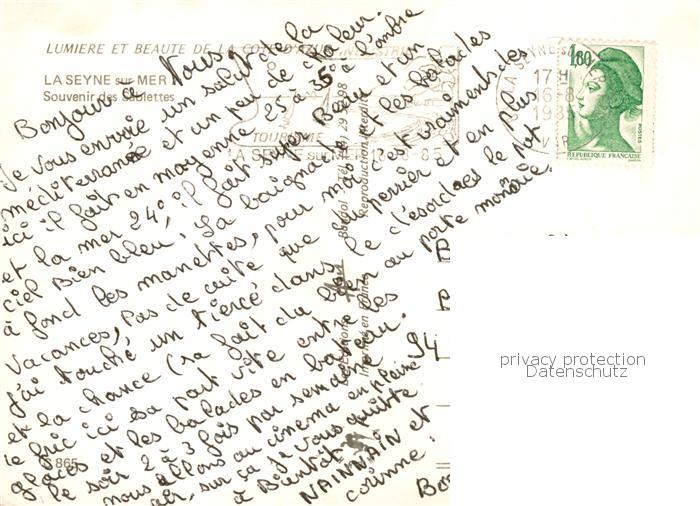 LUMIERE ET BEAUTE DE LA COTE D'AZUR
LA SEYNE sur MER
Souvenir des Sablettes
Bonjour à Vous
Je vous envoie un salut de la
méditerranée et un peu de chaleur.
ici il fait en moyenne 25 à 35° à l'ombre
et la mer 24°, il fait super Beau et un
ciel Bien bleu. La baignade et les balades
à fond les manettes, pour moi c vraiment des
vacances, Pas de cuite que du perrier et en Plus
J'ai touché un tiercé dans le désordre le
et la chance (sa fait du bien au porte monnaie.
le fric ici sa part vite entre les
glaces et les balades en bateau.
le soir 2 à 3 fois par semaine
nous allons au cinéma en pleine
air, sur ça je vous quitte
à Bientôt
NAINNAIN et
corinne.
94
Bo
865
TOURISME
LA SEYNE sur MER
16-8-85
LA SEYNE
17H
16-8
1985
VAR
1,80
POSTES
REPUBLIQUE FRANÇAISE
Reproduction interdite
Imprimé en France
privacy protection
Datenschutz